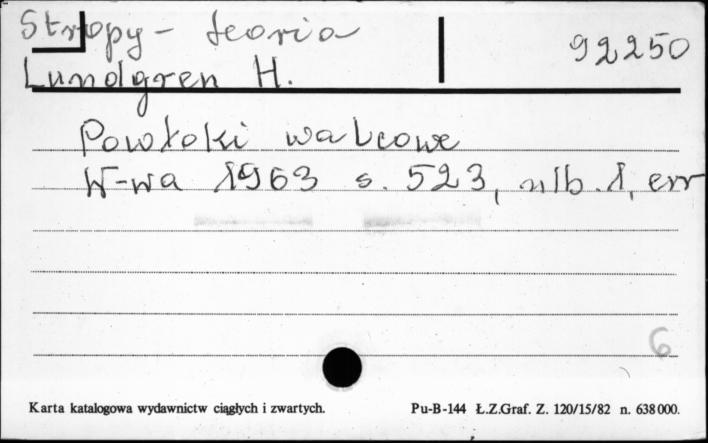 Stropy - teoria
92250
Lundgren H.
Powłoki walcowe
W-wa 1963 s. 523, nlb. 1, err
6
Karta katalogowa wydawnictw ciągłych i zwartych.
Pu-B-144 Ł.Z.Graf. Z. 120/15/82 n. 638000.